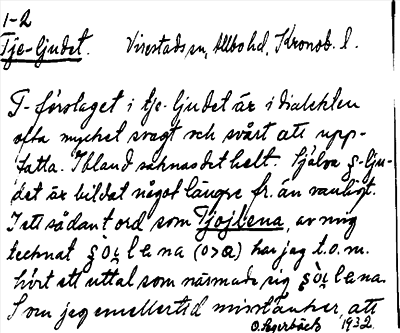 1-2
Tje-ljudet. Virestads sn, Allbo hd, Kronob. l.
T-förslaget i tje-ljudet är i dialekten
ofta mycket svagt och svårt att upp-
fatta. Ibland saknas det helt. Själva ʂ-lju-
det är bildat något längre fr. än vanligt.
I ett sådant ord som Tjojlena, av mig
tecknat lena (o>a) har jag t.o.m.
hört ett uttal som närmade sig lena.
Som jag emellertid misstänker, att
1932